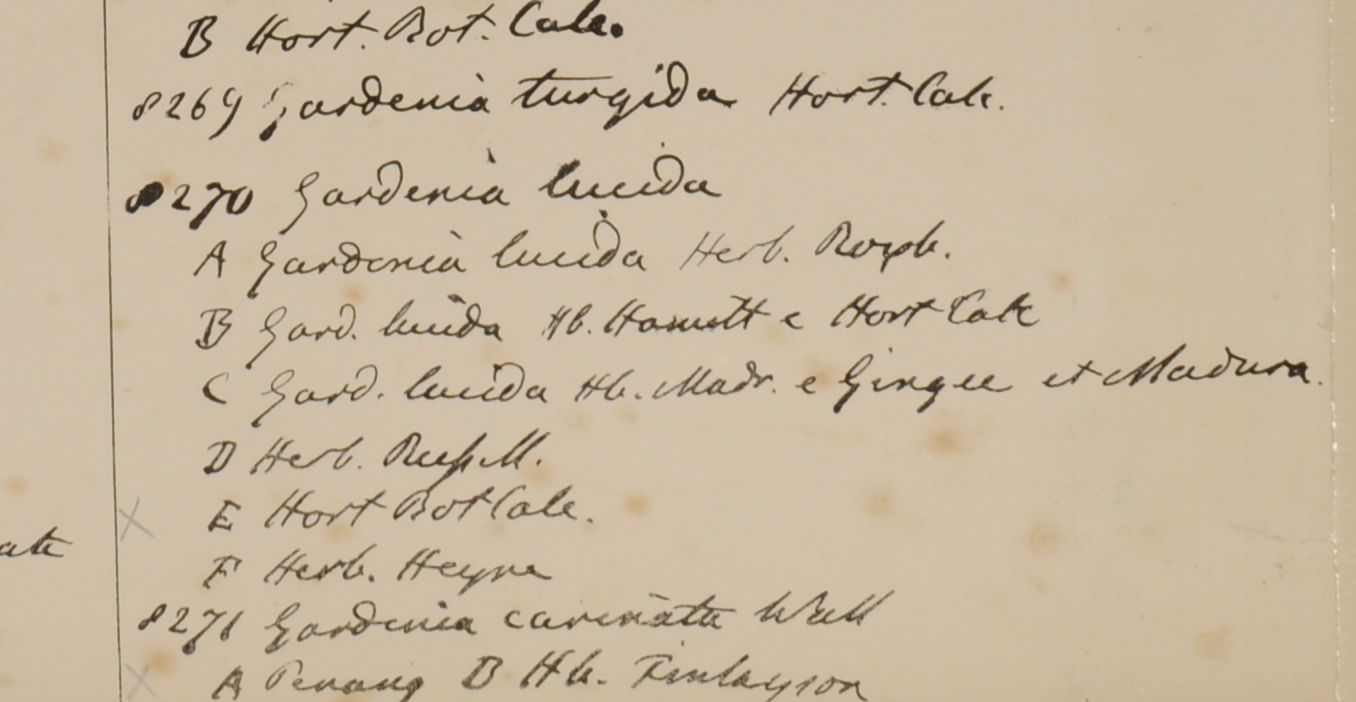 B Hort. Bot. Calc.
8269 Gardenia turgida Hort. Calc.
8270 Gardenia lucida
A Gardenia lucida Herb. Roxb.
B Gard. lucida Hb. Hamilt e Hort Calc
C Gard. lucida Hb. Madr. e Gingee et Madura.
D Herb. Russell.
E Hort Bot Calc.
F Herb. Heyne
8271 Gardenia carinata Wall
A Penang B Hb. Finlayson